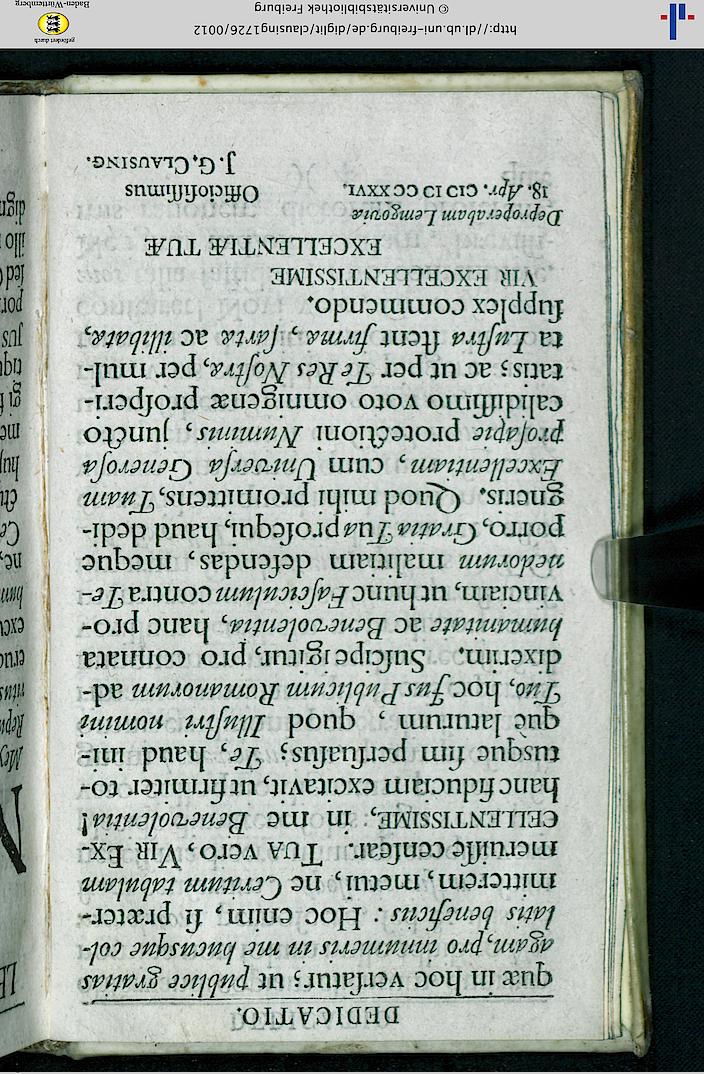 DEDICATIO.
quæ in hoc verſatur; ut publice gratias
agam, pro innumeris in me hucusque col-
latis beneficiis: Hoc enim, ſi præter-
mitterem, metui, ne Ceritum tabulam
meruiſſe cenſear. TUA vero, VIR EX-
CELLENTISSIME, in me Benevolentia!
hanc fiduciam excitavit, ut firmiter to-
tusque ſim perſuaſus; Te, haud ini-
què laturum, quod Illuſtri nomini
Tuo, hoc Jus Publicum Romanorum ad-
dixerim. Suſcipe igitur, pro connata
humanitate ac Benevolentia, hanc pro-
vinciam, ut hunc Faſciculum contra Te-
nedorum malitiam defendas, meque
porro, Gratia Tua proſequi, haud dedi-
gneris. Quod mihi promittens, Tuam
Excellentiam, cum Univerſa Generoſa
proſapie protectioni Numinis, juncto
calidiſſimo voto omnigenæ proſperi-
tatis; ac ut per Te Res Noſtra, per mul-
ta Luſtra ſtent firma, ſarta ac illibata,
ſupplex commendo.
VIR EXCELLENTISSIME
EXCELLENTIÆ TUÆ
Deproperabam Lemgoviæ
18. Apr. CIↃ IↃ CC XXVI.
Officioſiſſimus
J. G. CLAUSING.
http://dl.ub.uni-freiburg.de/diglit/clausing1726/0012
© Universitätsbibliothek Freiburg
gefördert durch
Baden-Württemberg